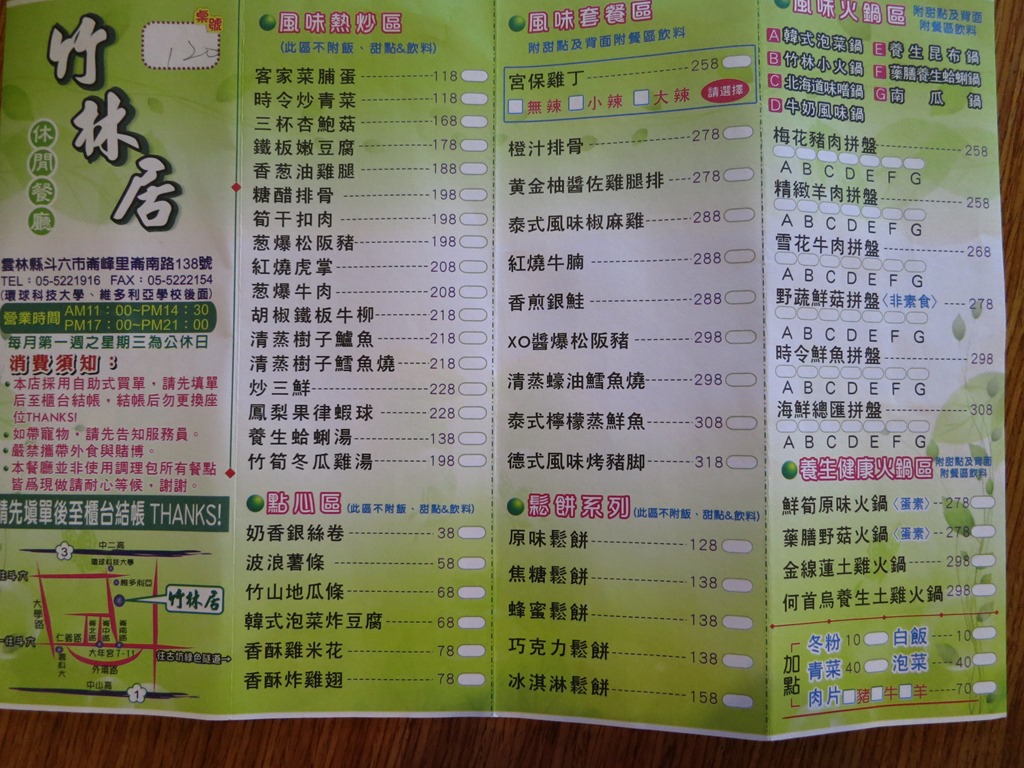 桌號
120
竹林居
休閒餐廳
雲林縣斗六市崙峰里崙南路138號
TEL：05-5221916 FAX：05-5222154
(環球科技大學、維多利亞學校後面)
營業時間 AM11：00~PM14：30
PM17：00~PM21：00
每月第一週之星期三為公休日
消費須知：
本店採用自助式買單，請先填單
后至櫃台結帳，結帳后勿更換座
位THANKS!
如帶寵物，請先告知服務員。
嚴禁攜帶外食與賭博。
本餐廳並非使用調理包所有餐點
皆為現做請耐心等候，謝謝。
請先填單後至櫃台結帳 THANKS!
3
中二高
環球科技大學
維多利亞
竹林居
往斗六
大學路
仁義路
崙北路
崙中路
崙南路
大年宮 7-11
外環路
往斗六
雲科大
往古坑綠色隧道
中山高
1
風味熱炒區
(此區不附飯、甜點&飲料)
客家菜脯蛋 118
時令炒青菜 118
三杯杏鮑菇 168
鐵板嫩豆腐 178
香葱油雞腿 188
糖醋排骨 198
筍干扣肉 198
葱爆松阪豬 198
紅燒虎掌 208
葱爆牛肉 208
胡椒鐵板牛柳 218
清蒸樹子鱸魚 218
清蒸樹子鱈魚燒 218
炒三鮮 228
鳳梨果律蝦球 228
養生蛤蜊湯 138
竹筍冬瓜雞湯 198
點心區 (此區不附飯、甜點&飲料)
奶香銀絲卷 38
波浪薯條 58
竹山地瓜條 68
韓式泡菜炸豆腐 68
香酥雞米花 78
香酥炸雞翅 78
風味套餐區
附甜點及背面附餐區飲料
宮保雞丁 258
無辣 小辣 大辣 請選擇
橙汁排骨 278
黃金柚醬佐雞腿排 278
泰式風味椒麻雞 288
紅燒牛腩 288
香煎銀鮭 288
XO醬爆松阪豬 298
清蒸蠔油鱈魚燒 298
泰式檸檬蒸鮮魚 308
德式風味烤豬腳 318
鬆餅系列 (此區不附飯、甜點&飲料)
原味鬆餅 128
焦糖鬆餅 138
蜂蜜鬆餅 138
巧克力鬆餅 138
冰淇淋鬆餅 158
風味火鍋區 附甜點及背面附餐區飲料
A韓式泡菜鍋 E養生昆布鍋
B竹林小火鍋 F藥膳養生蛤蜊鍋
C北海道味噌鍋 G南瓜鍋
D牛奶風味鍋
梅花豬肉拼盤 258
A B C D E F G
精緻羊肉拼盤 258
A B C D E F G
雪花牛肉拼盤 268
A B C D E F G
野蔬鮮菇拼盤〈非素食〉 278
A B C D E F G
時令鮮魚拼盤 298
A B C D E F G
海鮮總匯拼盤 308
A B C D E F G
養生健康火鍋區 附甜點及背面附餐區飲料
鮮筍原味火鍋〈蛋素〉 278
藥膳野菇火鍋〈蛋素〉 278
金線蓮土雞火鍋 298
何首烏養生土雞火鍋 298
加點
冬粉 10 白飯 10
青菜 40 泡菜 40
肉片 豬 牛 羊 70